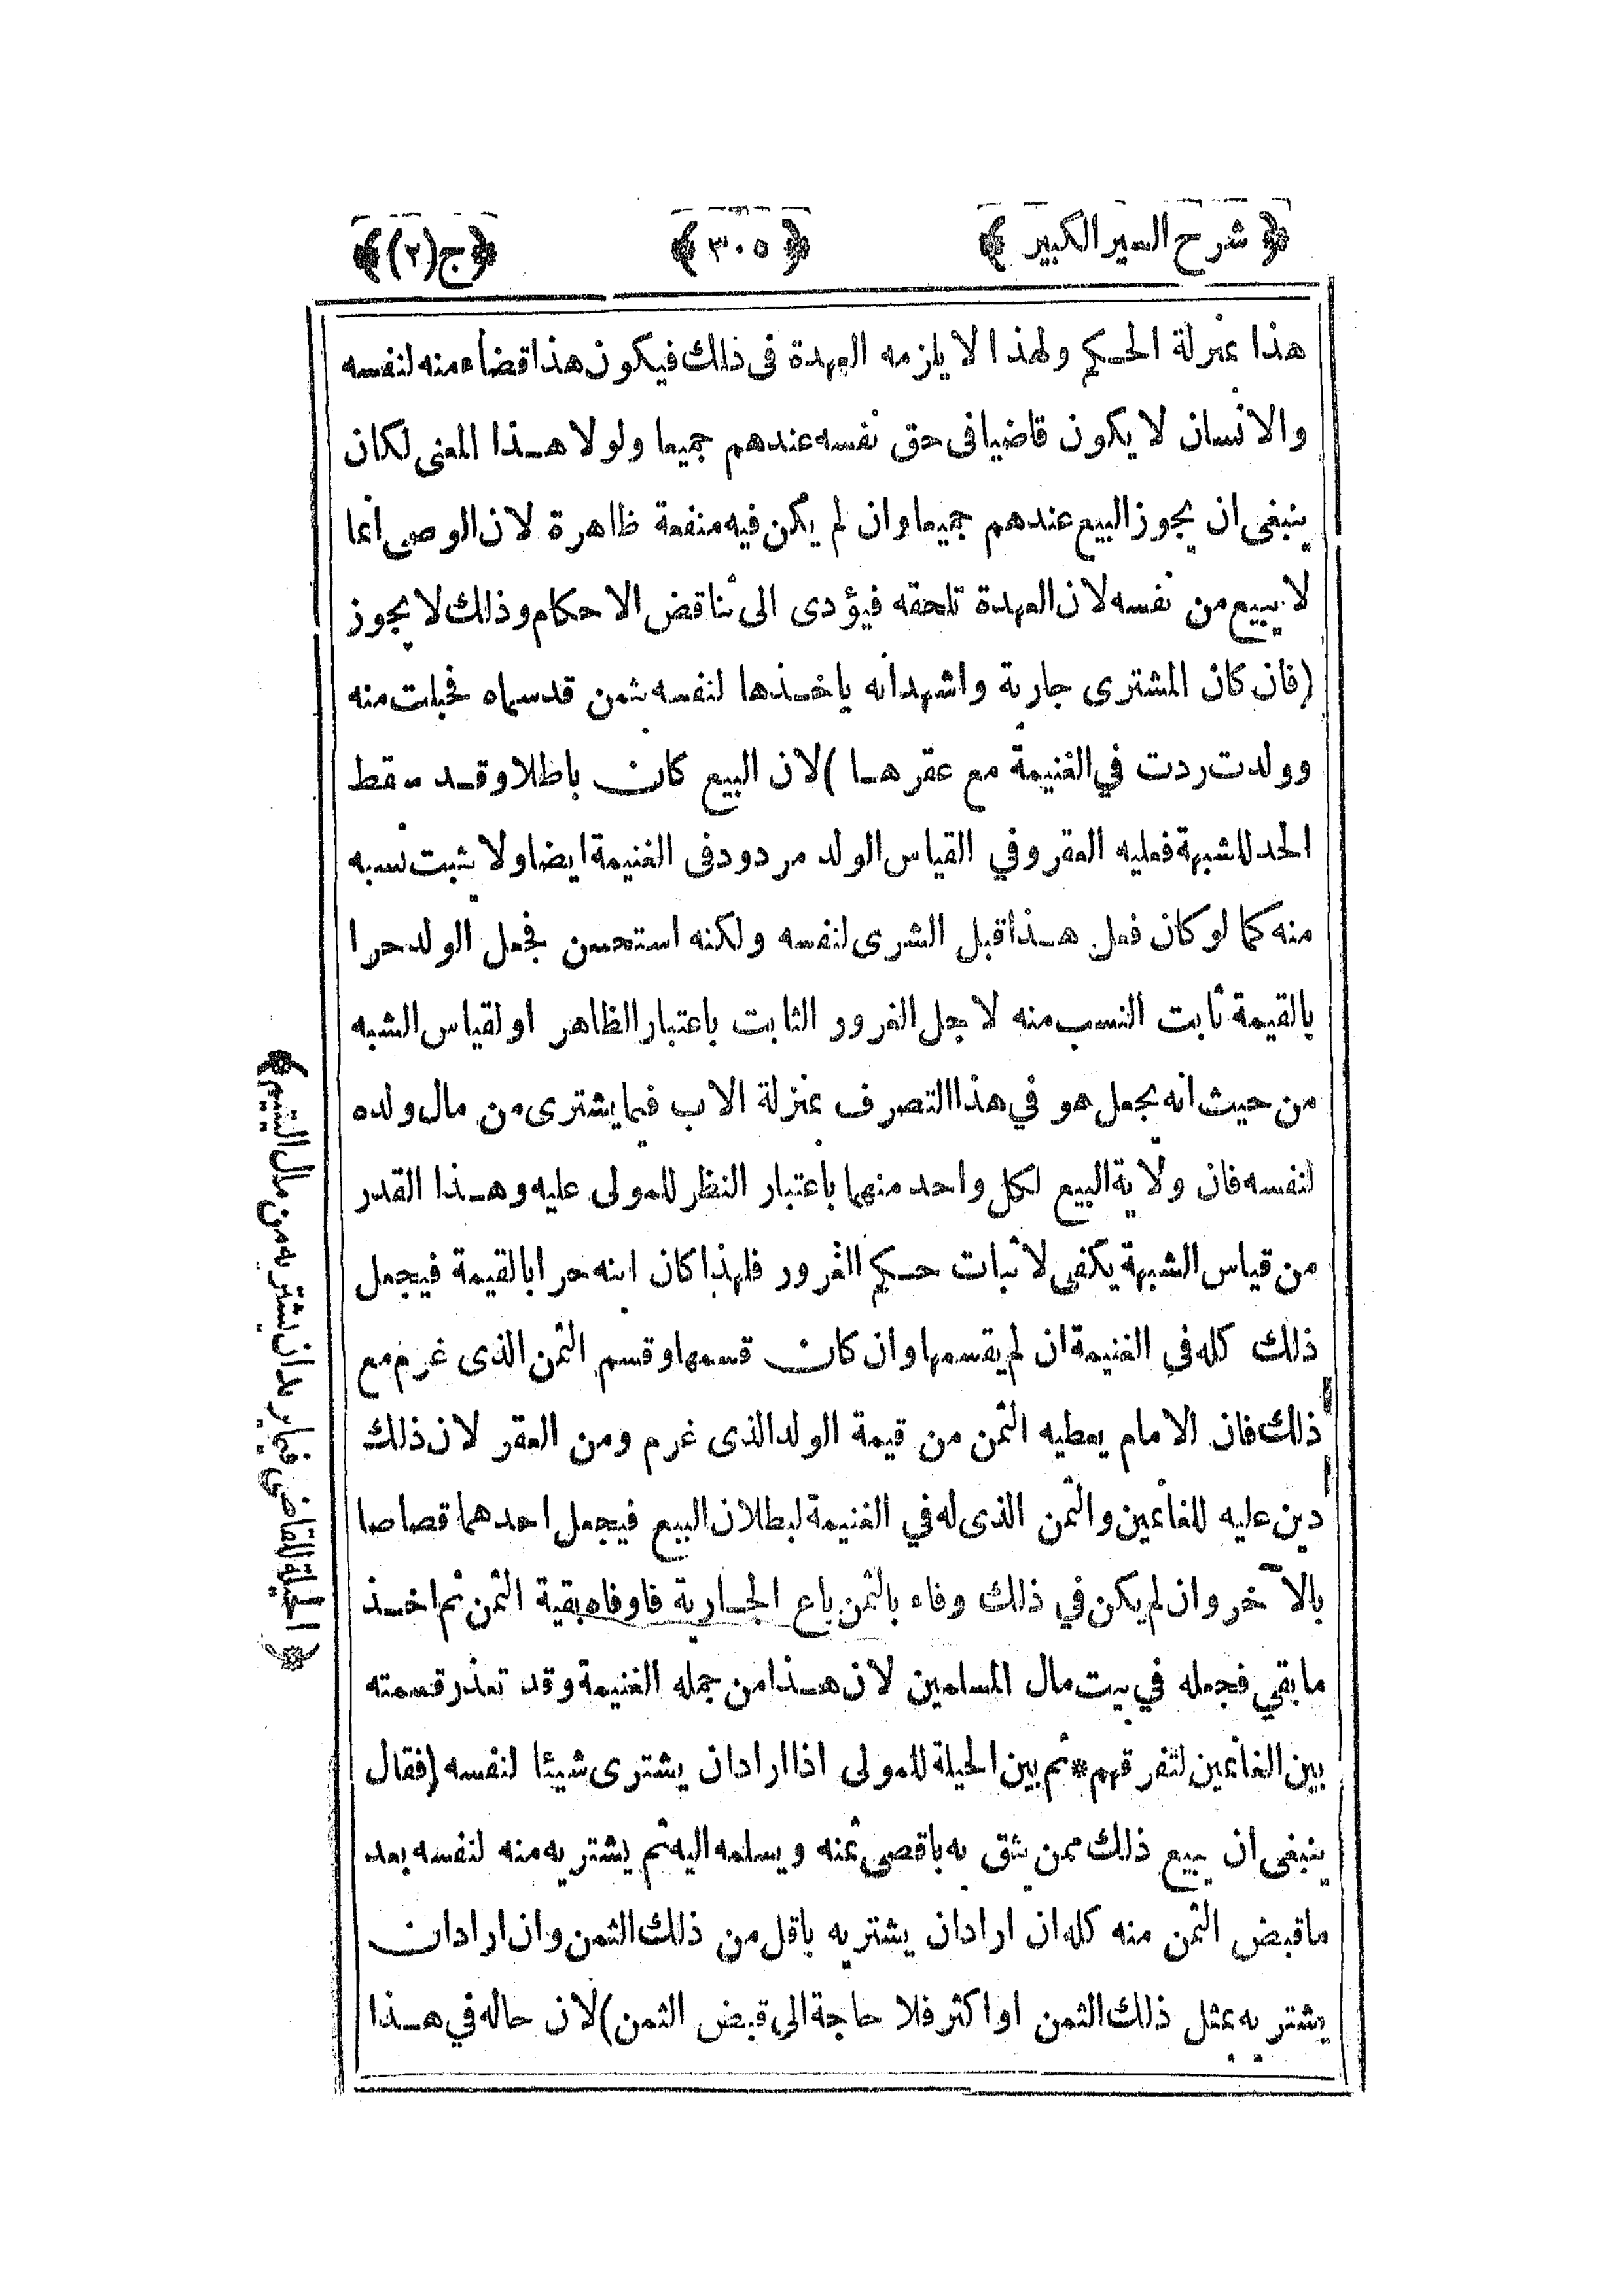 ﴿ شرح السير الكبير ﴾ ﴿ ٣٠٥ ﴾ ﴿ ج (٢) ﴾
هذا بمنزلة الحكم ولهذا لا يلزمه العهدة فى ذلك فيكون هذا قضاء منه لنفسه
والانسان لا يكون قاضيا فى حق نفسه عندهم جميعا ولولا هذا المعنى لكان
ينبغى ان يجوز البيع عندهم جميعا وان لم يكن فيه منفعة ظاهرة لان الوصى انما
لا يبيع من نفسه لان العهدة تلحقه فيؤدى الى تناقض الاحكام وذلك لا يجوز
(فان كان المشترى جارية واشهد انه ياخذها لنفسه بثمن قد سماه فحبلت منه
وولدت ردت في الغنيمة مع عقرها) لان البيع كان باطلا وقد سقط
الحد للشبهة فعليه العقر وفي القياس الولد مردود فى الغنيمة ايضا ولا يثبت نسبه
منه كما لو كان فعل هذا قبل الشرى لنفسه ولكنه استحسن فجعل الولد حرا
بالقيمة ثابت النسب منه لاجل الغرور الثابت باعتبار الظاهر او لقياس الشبه
من حيث انه يجعل هو في هذا التصرف بمنزلة الاب فيما يشترى من مال ولده
لنفسه فان ولاية البيع لكل واحد منهما باعتبار النظر للمولى عليه وهذا القدر
من قياس الشبهة يكفى لاثبات حكم الغرور فلهذا كان ابنه حرا بالقيمة فيجعل
ذلك كله في الغنيمة ان لم يقسمها وان كان قسمها وقسم الثمن الذى غرم مع
ذلك فان الامام يعطيه الثمن من قيمة الولد الذى غرم ومن العقر لان ذلك
دين عليه للغانمين والثمن الذى له في الغنيمة لبطلان البيع فيجعل احدهما قصاصا
بالآخر وان لم يكن في ذلك وفاء بالثمن باع الجارية فاوفاه بقية الثمن ثم اخذ
ما بقي فجعله في بيت مال المسلمين لان هذا من جمله الغنيمة وقد تعذر قسمته
بين الغانمين لتفرقهم * ثم بين الحيلة للمولى اذا اراد ان يشترى شيئا لنفسه (فقال
ينبغى ان يبيع ذلك ممن يثق به باقصى ثمنه ويسلمه اليه ثم يشتريه منه لنفسه بعد
ما قبض الثمن منه كله ان اراد ان يشتريه باقل من ذلك الثمن وان اراد ان
يشتريه بمثل ذلك الثمن او اكثر فلا حاجة الى قبض الثمن) لان حاله في هذا
﴿ الحيلة للقاضى فيما يريد ان يشتريه من مال اليتيم ﴾